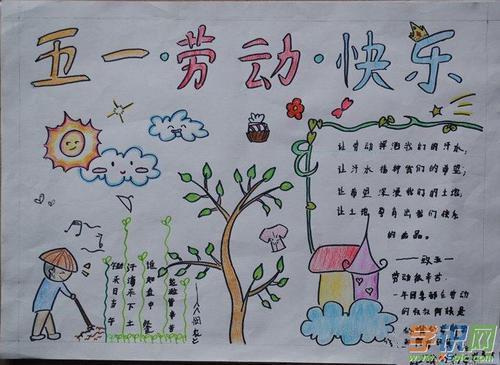 五一·劳动·快乐
让劳动挥洒我们的汗水,
让汗水播种我们的希望;
让希望深浸我们的土地,
让土地孕育出我们快乐
的出品。
劳动很辛苦
一年四季都在劳动
的叔叔阿姨是
锄禾日当午
汗滴禾下土
谁知盘中餐
粒粒皆辛苦
学识网